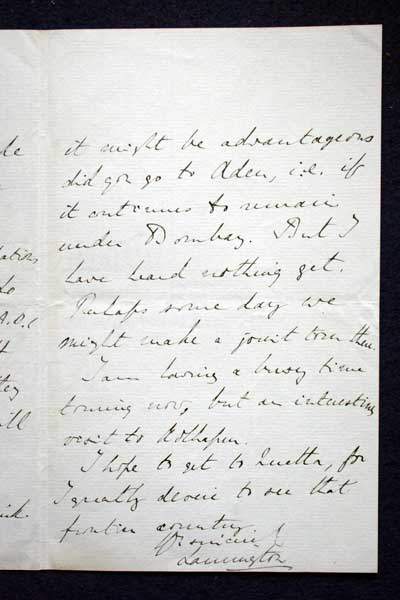 it might be advantageous
did you go to Aden, i.e. if
it continues to remain
under Bombay. But I
have heard nothing yet.
Perhaps some day we
might make a joint tour then.
I am having a busy time
touring now, but an interesting
visit to Kolhapur.
I hope to get to Quetta, for
I greatly desire to see that
frontier country.
Lamington